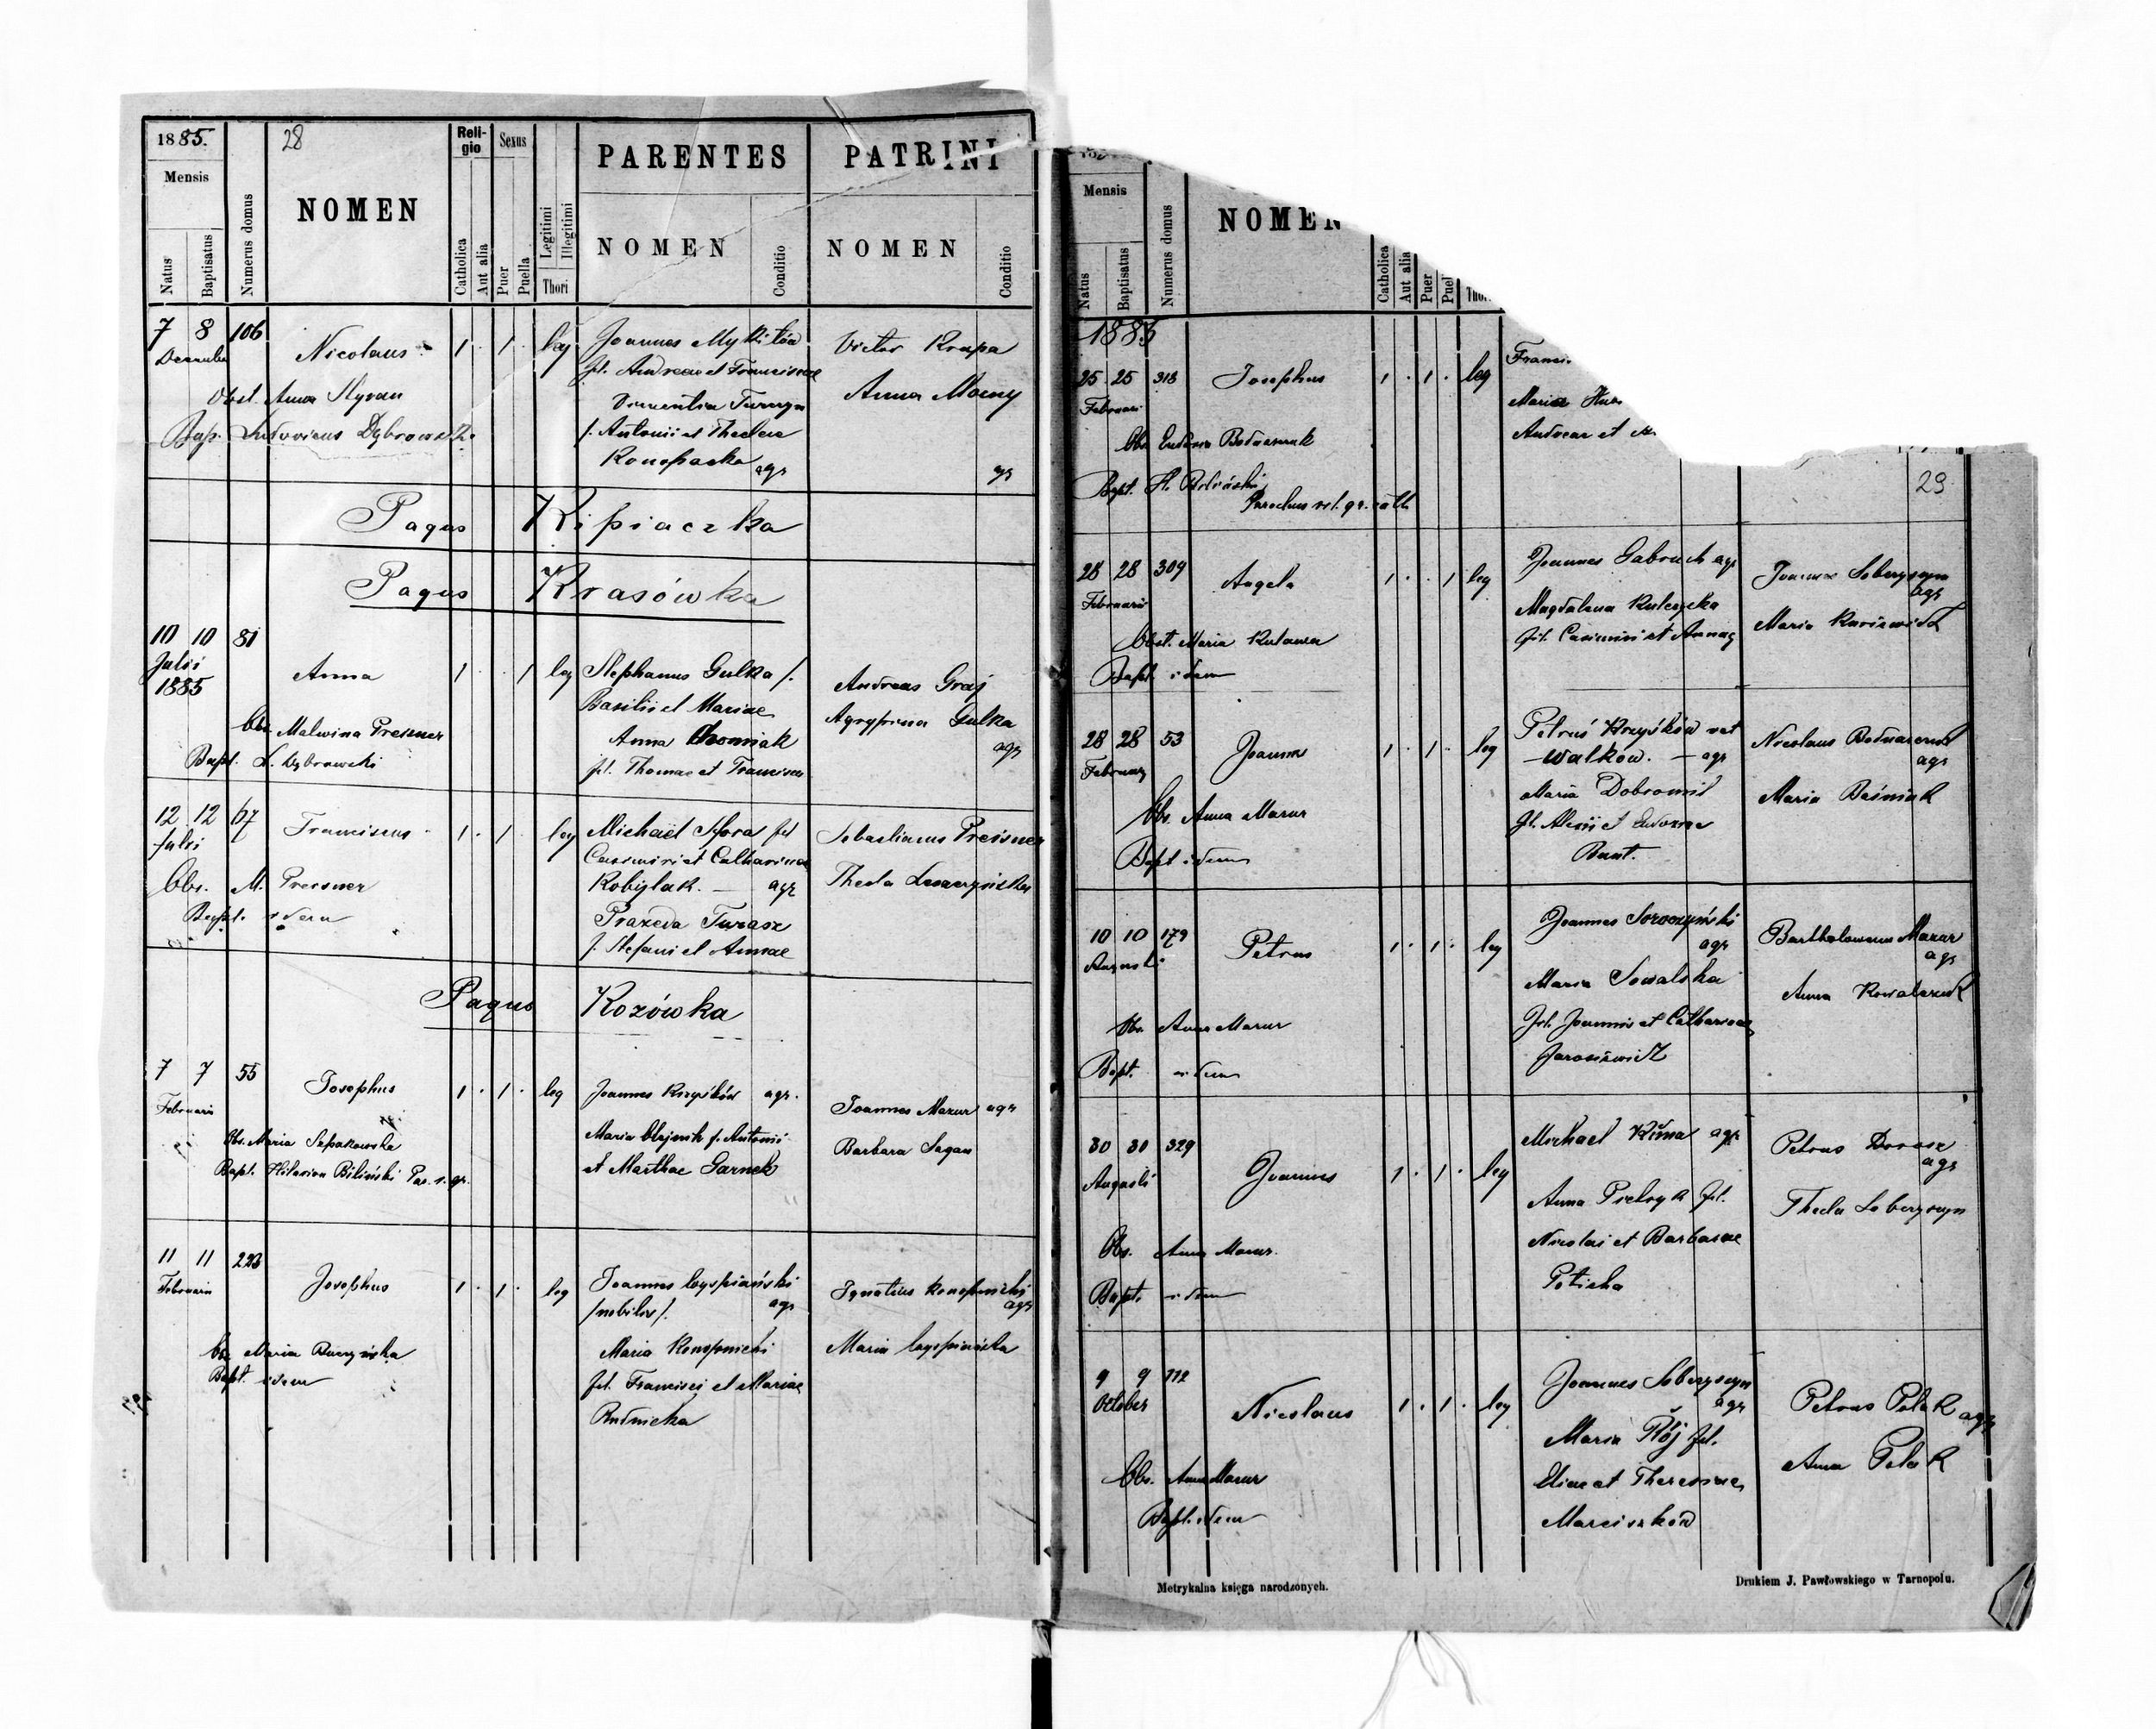 1885.
28
Mensis
Natus
Baptisatus
Numerus domus
NOMEN
Reli-
gio
Catholica
Aut alia
Sexus
Puer
Puella
Legitimi
Illegitimi
Thori
PARENTES
NOMEN
Conditio
PATRINI
NOMEN
Conditio
7 8 106 Nicolaus 1 . 1 . leg Joannes Mykitów Victor Krupa
fil. Andreae et Franciscae
Obst. Anna Anna
f. Antonii et Theclae
Bap. Ludovicus Dąbrowski
Konopacka agr
Pagus Kipiaczka
Pagus Krasówka
10 10 81
Julii
1885
Anna 1 . . 1 leg Stephanus Gulka f.
Basilii et Mariae
Andreas Graj
Agryppina Gulka
agr
Obs. Malwina Preisner Anna
Bapt. L. Dąbrowski
fil. Thomae et Franciscae
12 12 67
Julii
Franciscus 1 . 1 . leg Michaël fil
Casimiri et Catharinae
Sebastianus Preisner
Obs. M. Preisner
Kobylak. — agr
Thecla Leszczyńska
Bapt. idem
Praxeda Turasz
f. Stefani et Annae
Pagus Kozówka
7 7 55
Februarii
Josephus 1 . 1 . leg Joannes Krzyśków agr.
Joannes Mazur agr
Obs. Maria Szpakowska
Maria Olejnik f. Antonii
Barbara Sagan
Bapt. Hilarion Biliński Par. r. gr.
et Marthae Garnek
11 11 223
Februarii
Josephus 1 . 1 . leg Joannes
/nobilis/. agr
Ignatius Konopnicki
agr
Obs. Maria Buczyńska
Maria Konopnicki
Maria
Bapt. idem
fil. Francisci et Mariae
Rudnicka
Mensis
Natus
Baptisatus
Numerus domus
NOMEN
Catholica
Aut alia
Puer
Puel
Thori
1885
25 25 318
Februari
Josephus 1 . 1 . leg
Maria
Andreae et
Obs. Eudoxia Bodnarczuk
Bapt. H. Biliński
Parochus rit. gr. cath.
29
28 28 309
Februarii
Angela 1 . . 1 leg
Joannes Gabruch agr
Magdalena Kulczycka
fil. Casimiri et Annae
Joannes Soberyszyn
agr
Maria
Obst. Maria Kulawa
Bapt. idem
28 28 53
Februarii
Joannes 1 . 1 . leg
Petrus Krzyśków vel
— Walków. — agr
Maria Dobromil
fil. Alexii et Eudoxiae
Bunt.
Nicolaus Bodnarczuk
agr
Maria Baśniak
Obs. Anna Mazur
Bapt idem
10 10 179
Augusti
Petrus 1 . 1 . leg
Joannes Soroczyński
agr
Maria Sowalska
fil. Joannis et Catharinae
Jarosiewicz
Bartholomeus Mazur
agr
Anna Kowalczuk
Obs. Anna Mazur
Bapt. idem
30 30 329
Augusti
Joannes 1 . 1 . leg
Michael Kima agr
Anna Pietryk fil.
Nicolai et Barbarae
Poticha
Petrus Dorosz
agr
Thecla Soberyszyn
Obs. Anna Mazur.
Bapt. idem
9 9 112
October
Nicolaus 1 . 1 . leg
Joannes Soberyszyn
agr
Maria Rój fil.
Eliae et Theresiae
Marciszków
Petrus Polak agr
Anna Polak
Obs. Anna Mazur
Bapt. idem
Metrykalna księga narodzonych.
Drukiem J. Pawłowskiego w Tarnopolu.